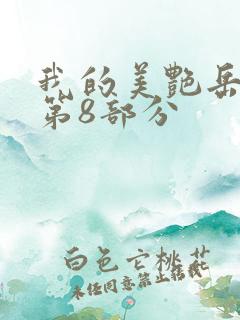 我的美艷岳
第8部分
白色亡桃花
未经同意禁止转载